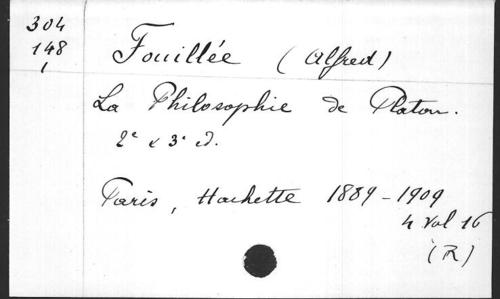 304
148
1
Fouillée (Alfred)
La Philosophie de Platon.
2e & 3e éd.
Paris, Hachette 1889-1909
4 vol 16
(R)